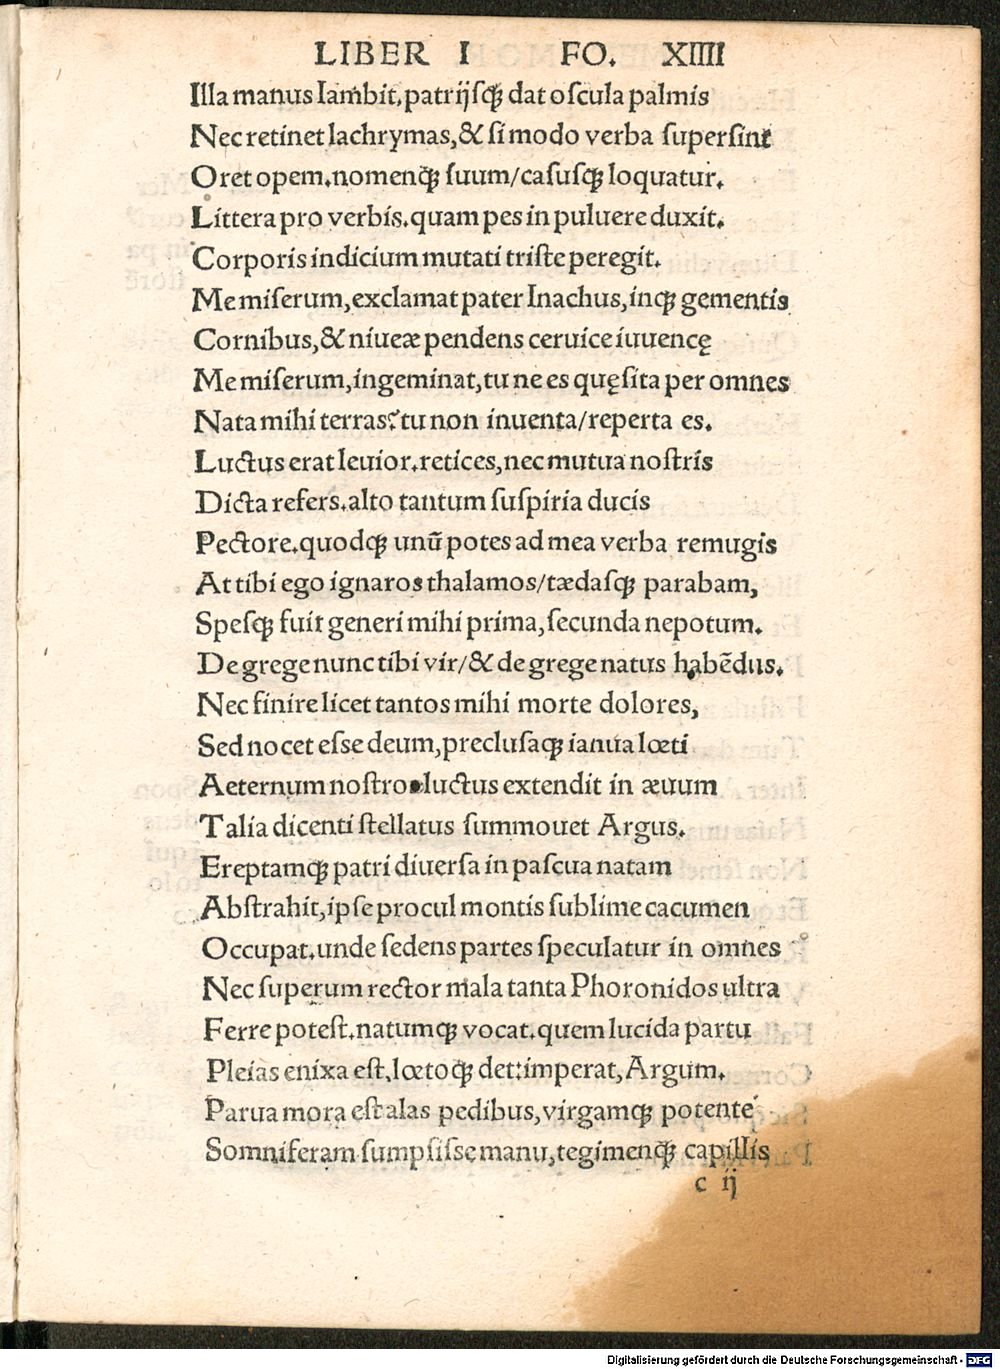 LIBER I FO. XIIII
Illa manus lambit, patrijſqꝫ dat oſcula palmis
Nec retinet lachrymas, & ſi modo verba ſuperſint
Oret opem. nomenqꝫ ſuum/caſuſqꝫ loquatur.
Littera pro verbis. quam pes in puluere duxit.
Corporis indicium mutati triſte peregit.
Me miſerum, exclamat pater Inachus, inqꝫ gementis
Cornibus, & niueæ pendens ceruice iuuencę
Me miſerum, ingeminat, tu ne es quęſita per omnes
Nata mihi terras? tu non inuenta/reperta es.
Luctus erat leuior. retices, nec mutua noſtris
Dicta refers. alto tantum ſuſpiria ducis
Pectore. quodqꝫ unū potes ad mea verba remugis
At tibi ego ignaros thalamos/tædaſqꝫ parabam,
Speſqꝫ fuit generi mihi prima, ſecunda nepotum.
De grege nunc tibi vir/& de grege natus habēdus.
Nec finire licet tantos mihi morte dolores,
Sed nocet eſſe deum, precluſaqꝫ ianua lœti
Aeternum noſtro luctus extendit in æuum
Talia dicenti ſtellatus ſummouet Argus.
Ereptamqꝫ patri diuerſa in paſcua natam
Abſtrahit, ipſe procul montis ſublime cacumen
Occupat. unde ſedens partes ſpeculatur in omnes
Nec ſuperum rector mala tanta Phoronidos ultra
Ferre poteſt. natumqꝫ vocat. quem lucida partu
Pleias enixa eſt, lœtoqꝫ det: imperat, Argum.
Parua mora eſt alas pedibus, virgamqꝫ potentē
Somniferam ſumpſiſſe manu, tegimenqꝫ capillis
c ij
Digitalisierung gefördert durch die Deutsche Forschungsgemeinschaft - DFG